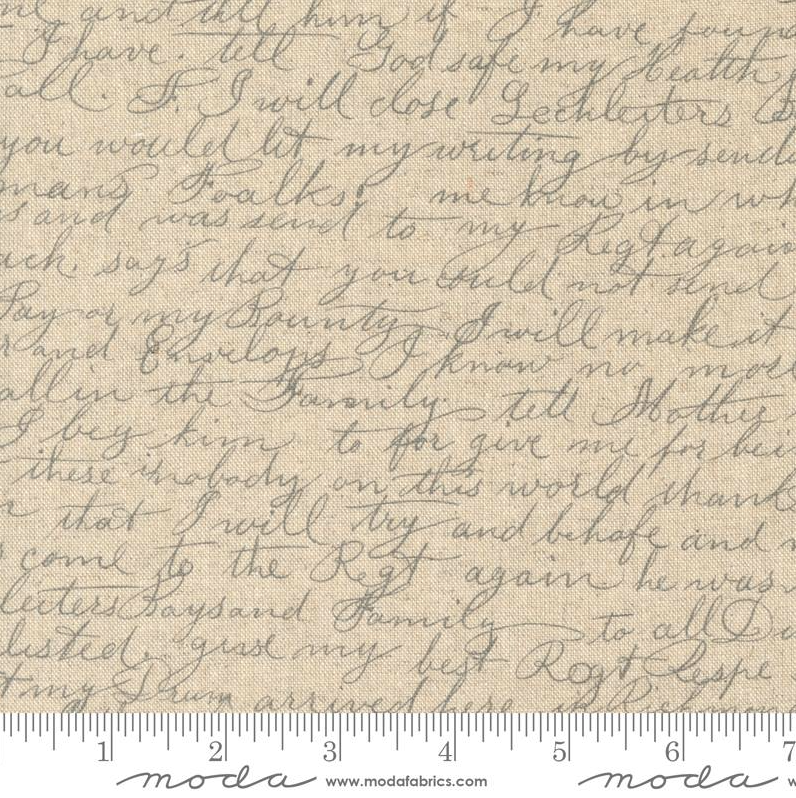 me and tell him if I have found
I have. tell God safe my Health
all. F. I will close Lechleiters
you would let my writing by send
mans Foalks. me know in wh
s and was send to my Regt again
ach. says that you could not send
Pay or my Bounty. I will make it
r and Envelops I know no more
all in the Family. tell Mother
I beg him to for give me for bei
these is nobody on this world thank
that I will try and behafe and
come to the Regt again he was
leiters Bays and Family to all Di
listed. give my best Regt Respe
t my Drum arrived here in Richmon
1 2 3 4 5 6 7
moda www.modafabrics.com moda w